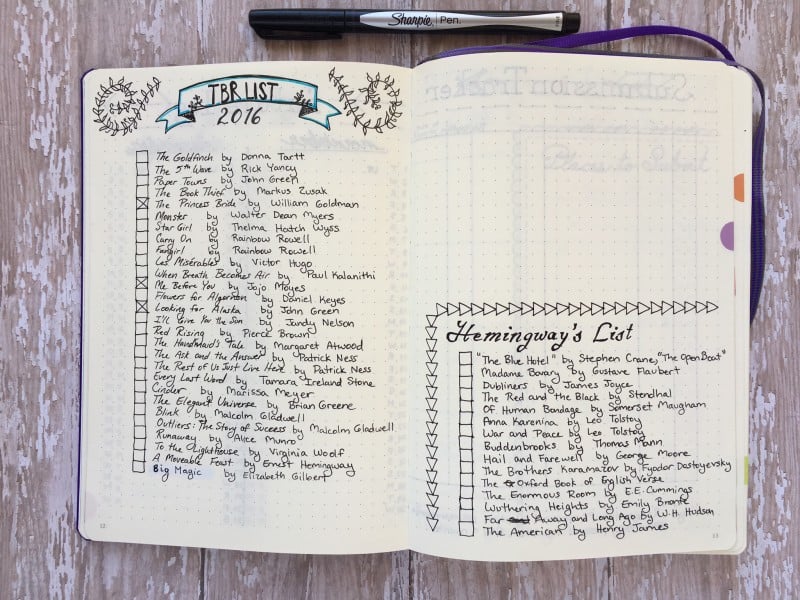 Sharpie. Pen.
TBR LIST
2016
The Goldfinch by Donna Tartt
The 5th Wave by Rick Yancy
Paper Towns by John Green
The Book Thief by Markus Zusak
The Princess Bride by William Goldman
Monster by Walter Dean Myers
Star Girl by Thelma Hatch Wyss
Carry On by Rainbow Rowell
Fangirl by Rainbow Rowell
Les Misérables by Victor Hugo
When Breath Becomes Air by Paul Kalanithi
Me Before You by Jojo Moyes
Flowers for Algernon by Daniel Keyes
Looking for Alaska by John Green
I'll Give You the Sun by Jandy Nelson
Red Rising by Pierce Brown
The Handmaid's Tale by Margaret Atwood
The Ask and the Answer by Patrick Ness
The Rest of Us Just Live Here by Patrick Ness
Every Last Word by Tamara Ireland Stone
Cinder by Marissa Meyer
The Elegant Universe by Brian Greene
Blink by Malcolm Gladwell
Outliers: The Story of Success by Malcolm Gladwell
Runaway by Alice Munro
To the Lighthouse by Virginia Woolf
A Moveable Feast by Ernest Hemingway
Big Magic by Elizabeth Gilbert
12
Submission Tracker
Hemingway's List
"The Blue Hotel" by Stephen Crane, "The Open Boat"
Madame Bovary by Gustave Flaubert
Dubliners by James Joyce
The Red and the Black by Stendhal
Of Human Bondage by Somerset Maugham
Anna Karenina by Leo Tolstoy
War and Peace by Leo Tolstoy
Buddenbrooks by Thomas Mann
Hail and Farewell by George Moore
The Brothers Karamazov by Fyodor Dostoyevsky
The Oxford Book of English Verse
The Enormous Room by E.E. Cummings
Wuthering Heights by Emily Bronte
Far Away and Long Ago by W.H. Hudson
The American by Henry James
13